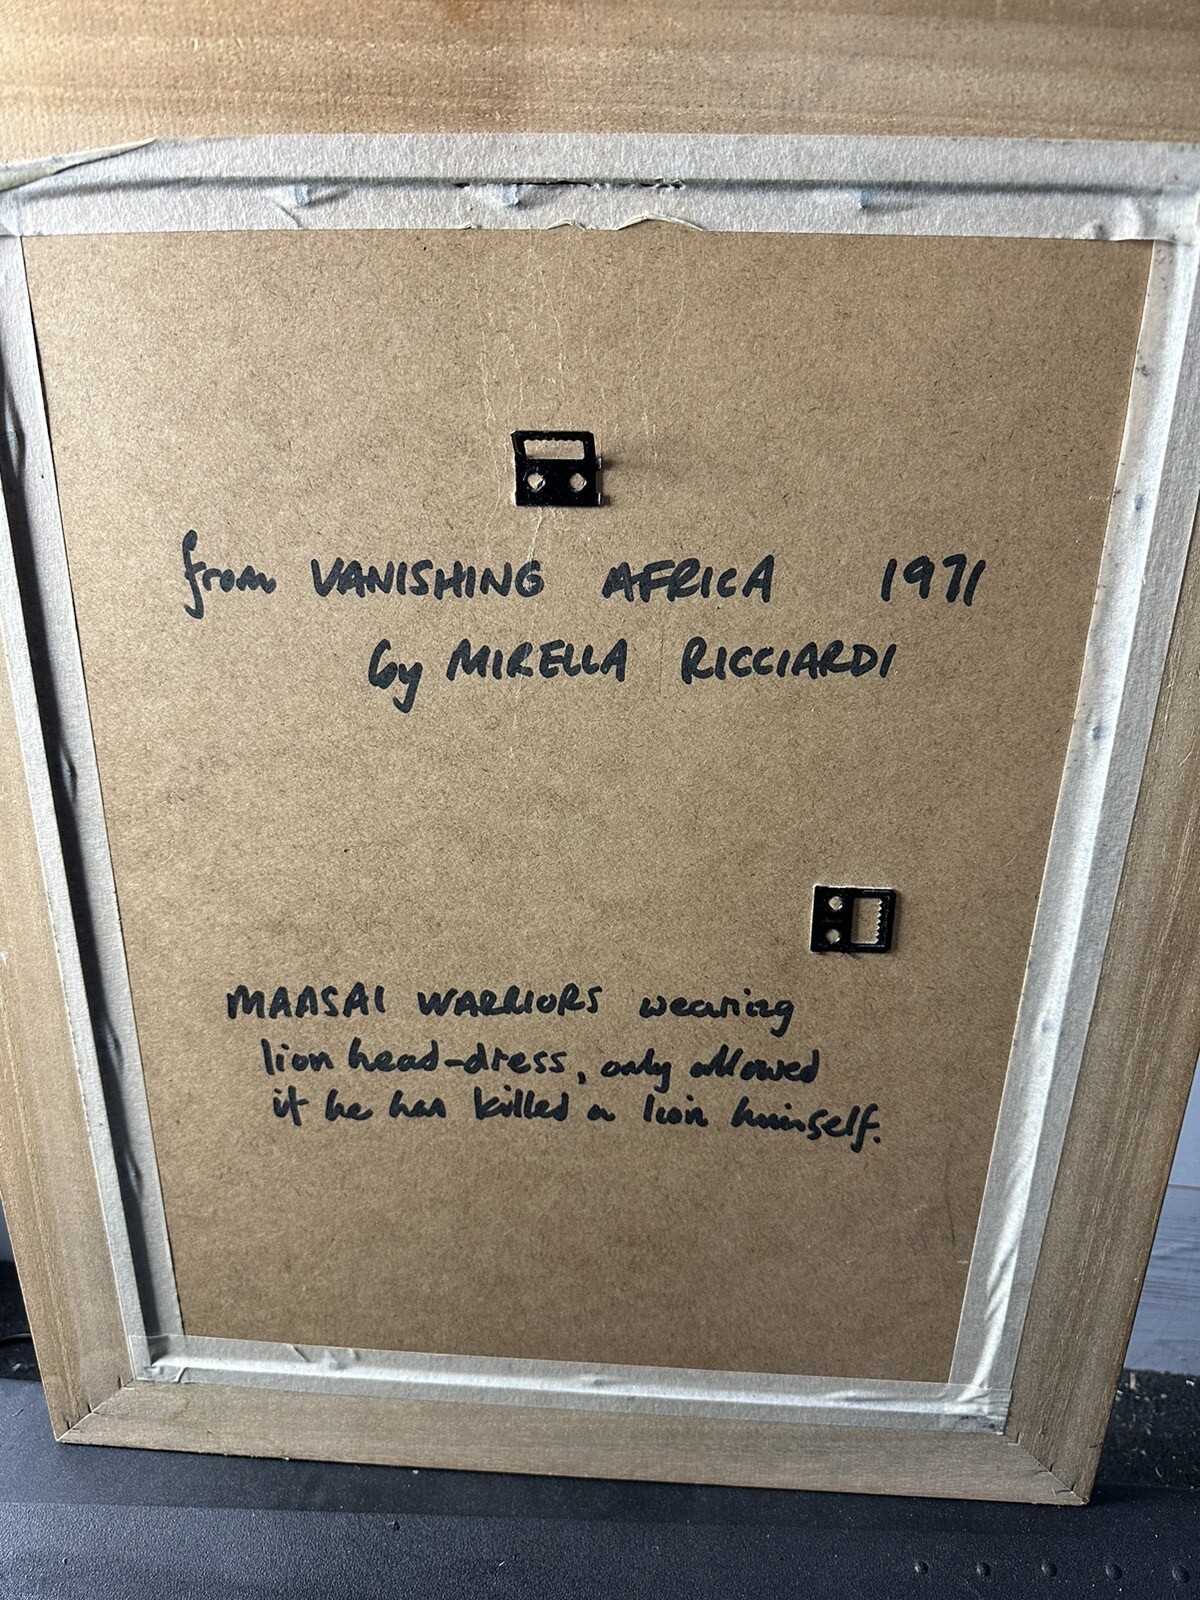 from VANISHING AFRICA 1971
by MIRELLA RICCIARDI
MAASAI WARRIORS wearing
lion head-dress, only allowed
if he has killed a lion himself.